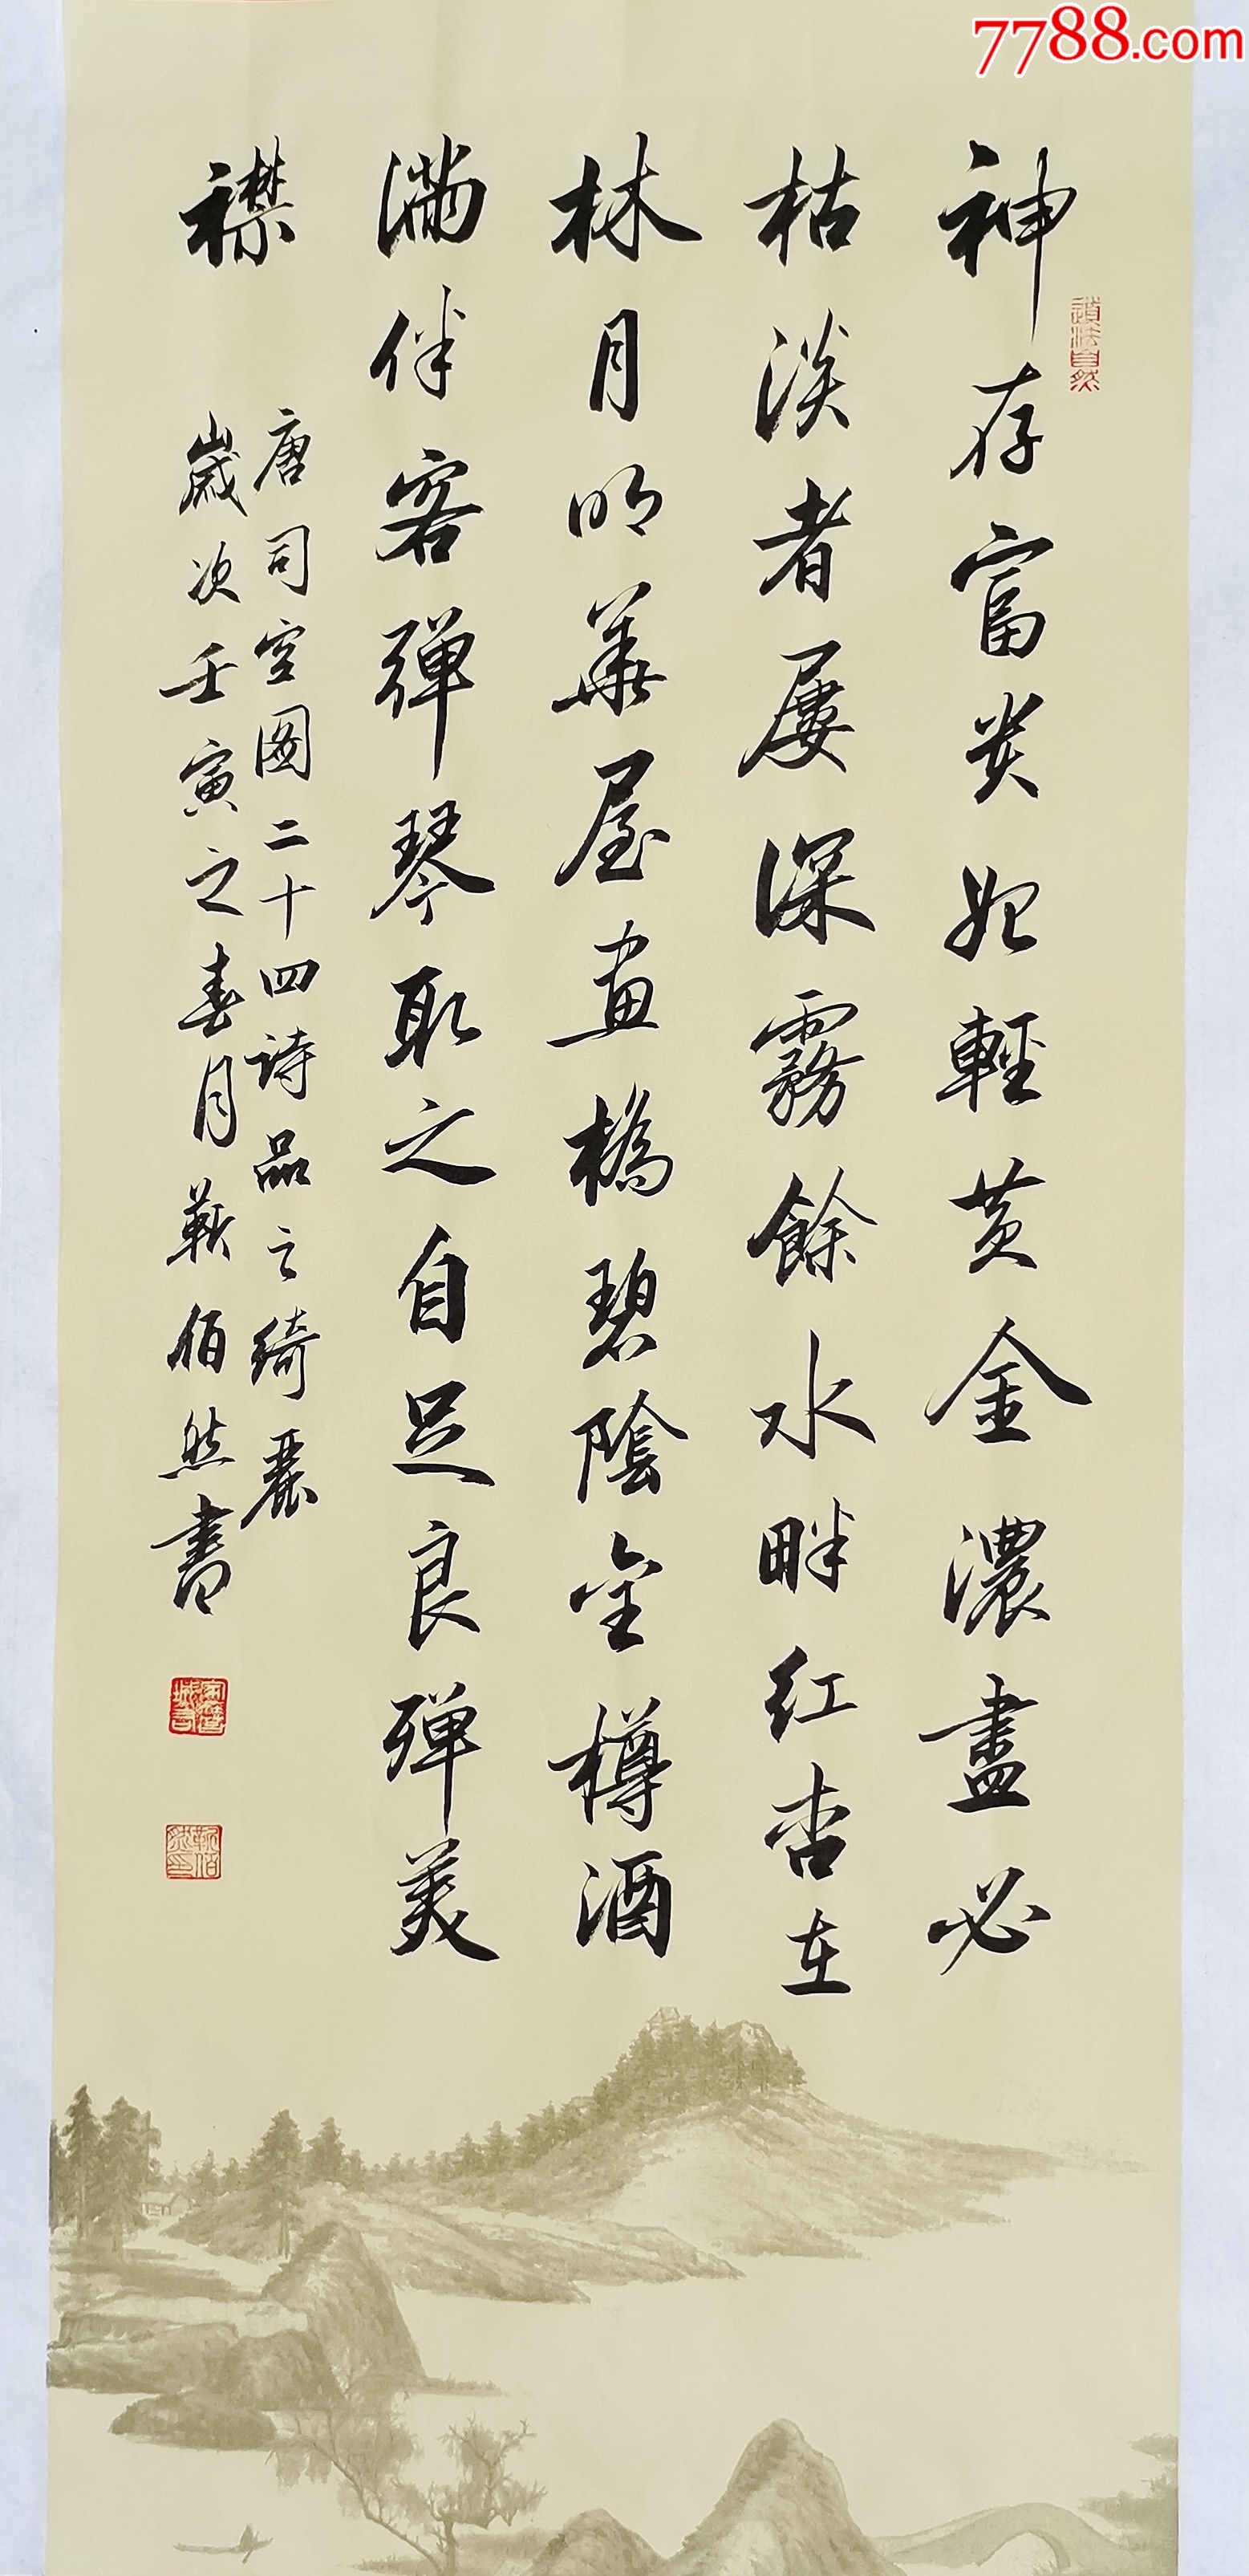 7788.com
道法自然
神存富贵始輕黄金濃盡必
枯淡者屡深霧餘水畔红杏在
林月明華屋畫橋碧陰金樽酒
满伴客弹琴取之自足良殫美
襟
唐司空图二十四詩品之綺麗
歲次壬寅之春月靳佰然書
靳佰然印